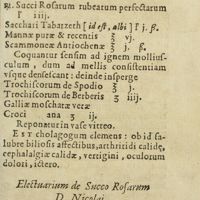 ℞. Succi Rosarum rubearum perfectarum
℔ iiij.
Sacchari Tabarzeth [id est, albi] ℔ j. ß.
Mannæ puræ & recentis ℥ vj.
Scammoneæ Antiochenæ ℥ j. ß.
Coquantur sensim ad ignem mollius-
culum, dum ad mellis consistentiam
vsque densescant: deinde insperge
Trochiscorum de Spodio ℥ j.
Trochiscorum de Berberis ℥ iij.
Galliæ moschatæ veræ
Croci ana ʒ ij.
Reponatur in vase vitreo.
EST cholagogum clemens: ob id sa-
lubre biliosis affectibus, arthritidi calidæ,
cephalalgiæ calidæ, vertigini, oculorum
dolori, ictero.
Electuarium de Succo Rosarum
D. Nicolai